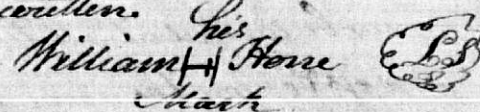 written.
his
William H Horne
Mark
LS